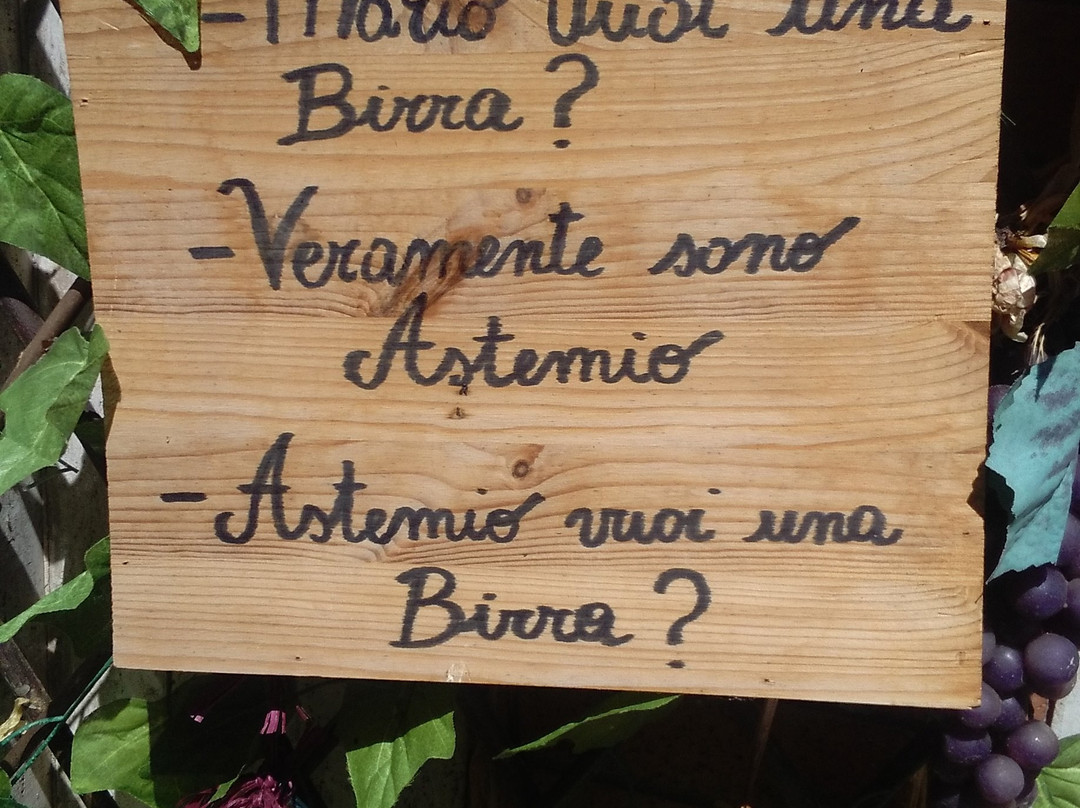 - Mario vuoi una
Birra ?
- Veramente sono
Astemio
- Astemio vuoi una
Birra ?